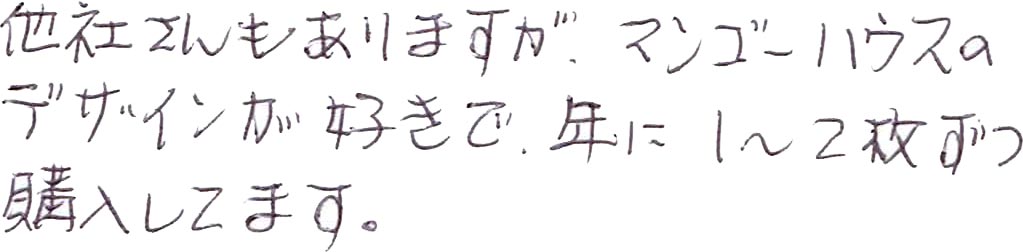 他社さんもありますが、マンゴーハウスの
デザインが好きで、年に1～2枚ずつ
購入してます。